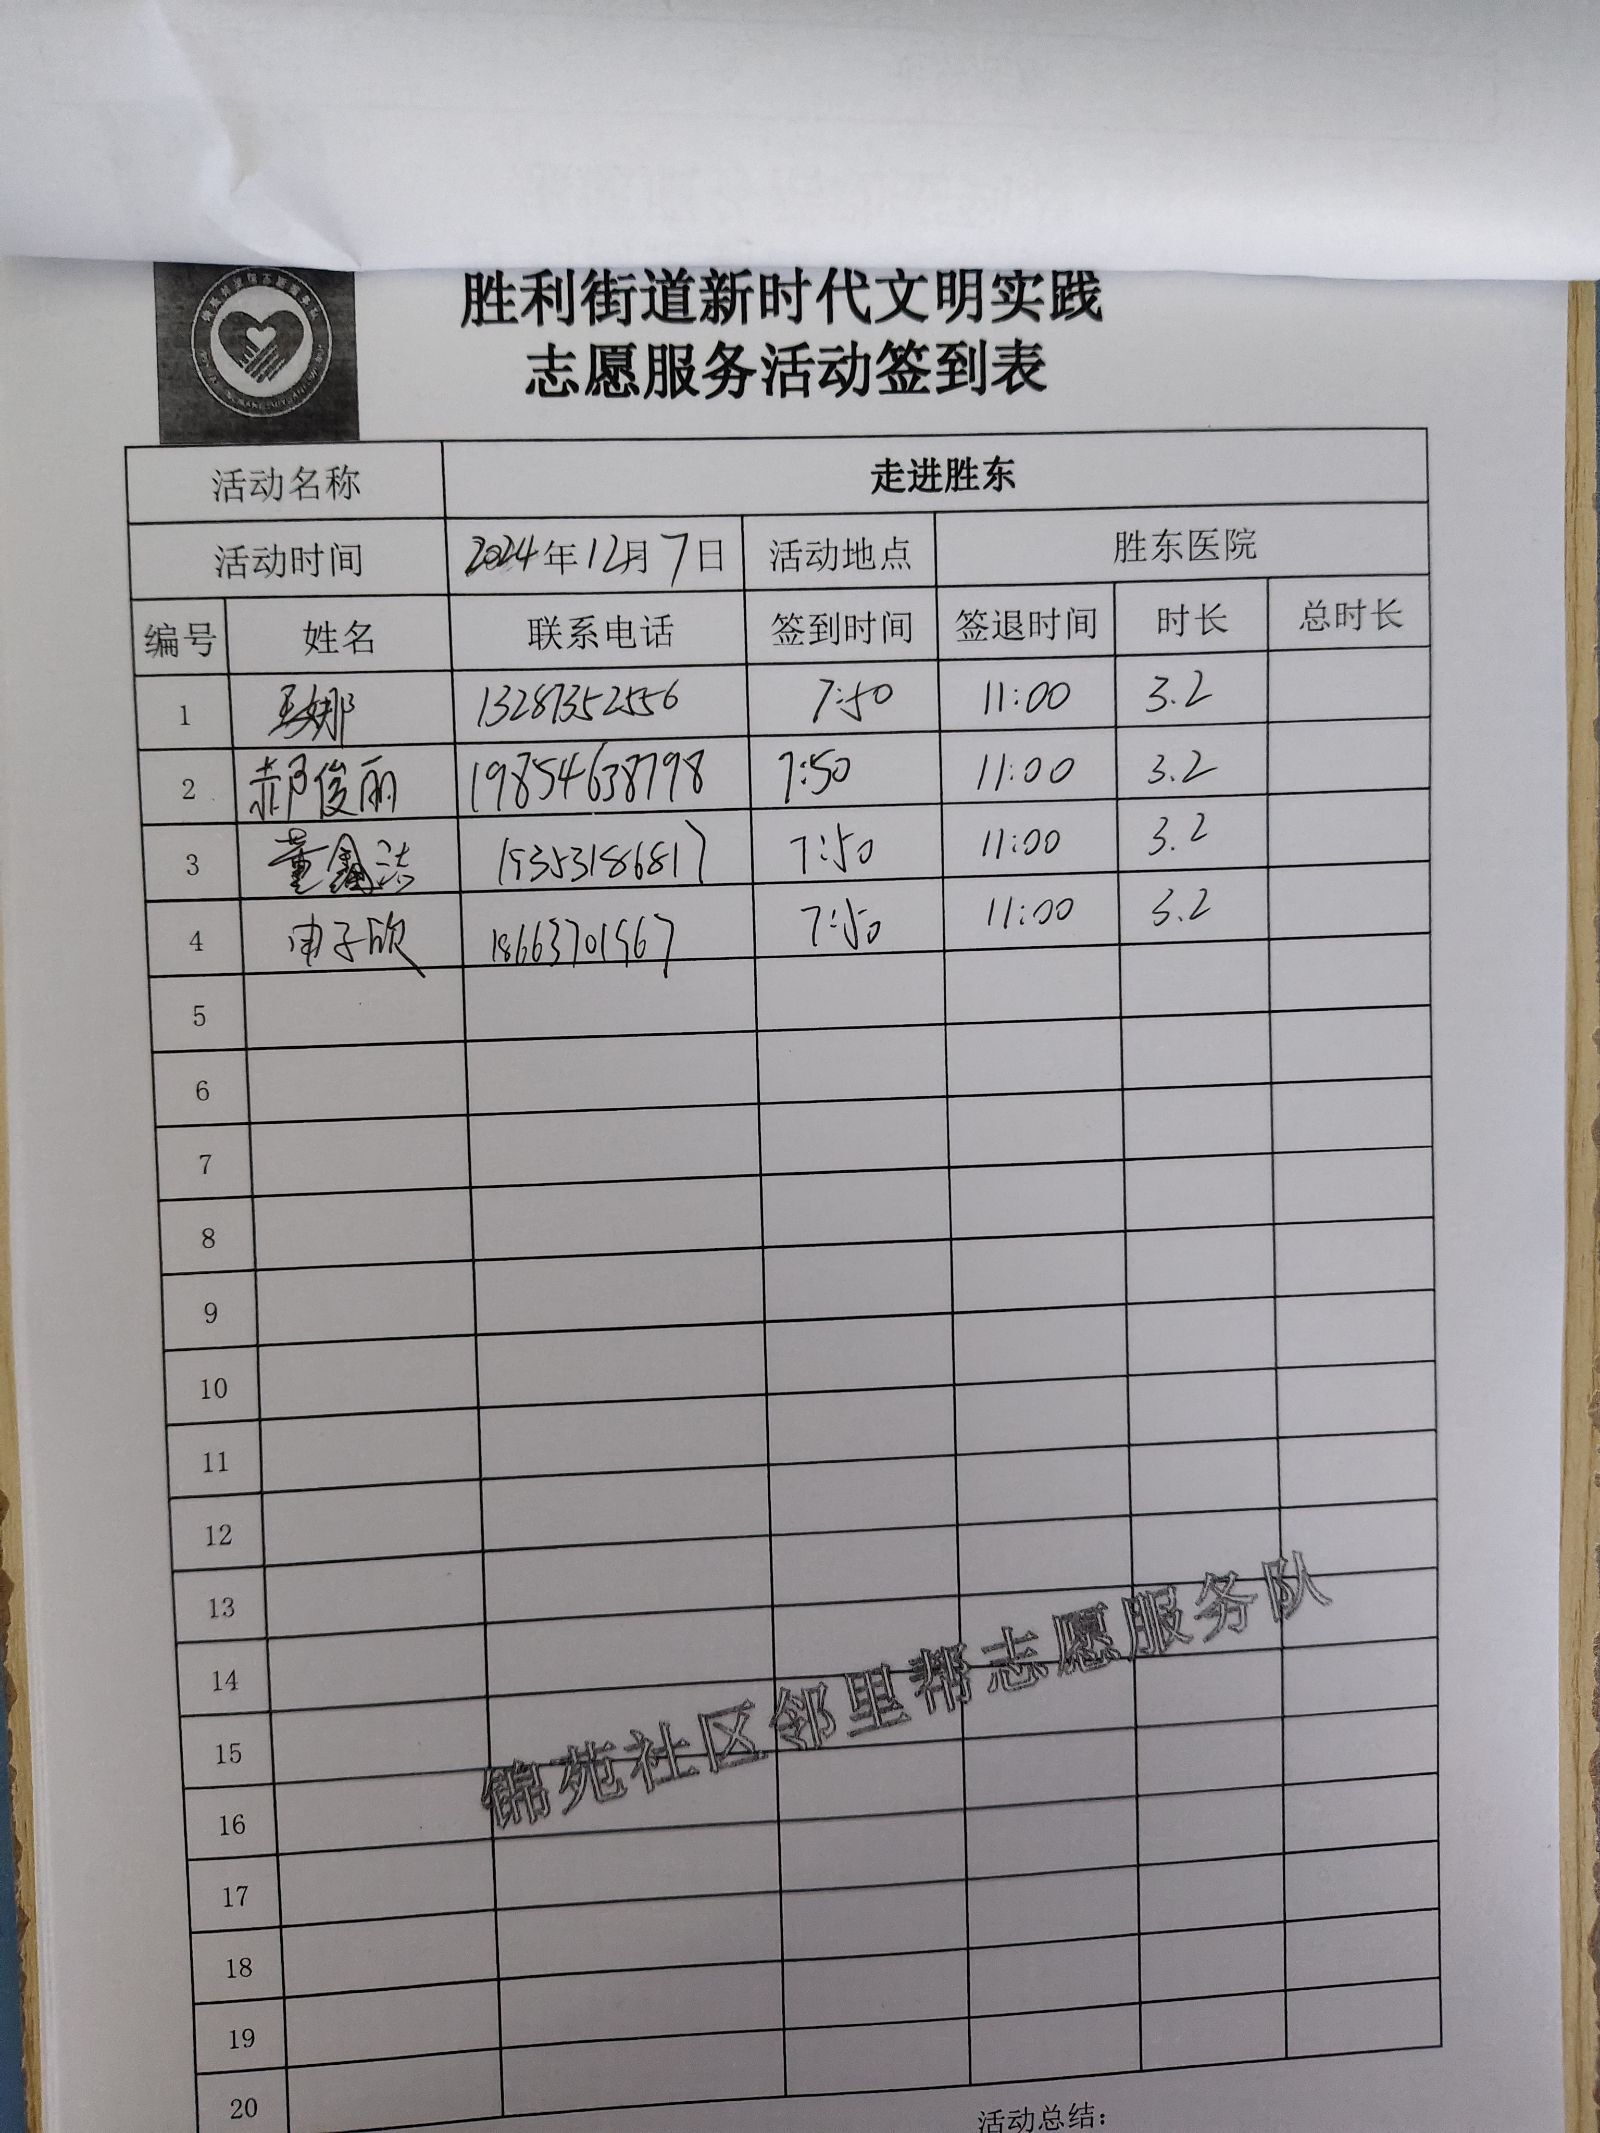 胜利街道新时代文明实践
志愿服务活动签到表
活动名称 走进胜东
活动时间 2024年12月7日 活动地点 胜东医院
编号 姓名 联系电话 签到时间 签退时间 时长 总时长
1 王娜 13287352556 7:50 11:00 3.2
2 郝俊丽 19854638798 7:50 11:00 3.2
3 董鑫洁 19353186817 7:50 11:00 3.2
4 申子欣 18663701567 7:50 11:00 3.2
5
6
7
8
9
10
11
12
13
14
15
16
17
18
19
20
锦苑社区邻里帮志愿服务队
活动总结：